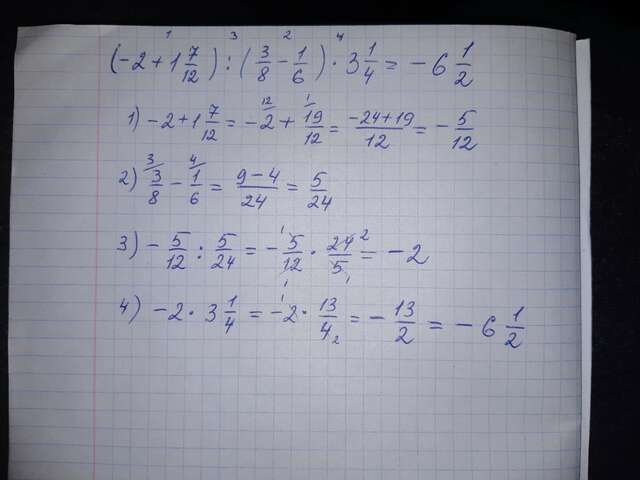 (-2 + 1 7/12) : (3/8 - 1/6) · 3 1/4 = -6 1/2
1) -2 + 1 7/12 = -2 + 19/12 = (-24+19)/12 = -5/12
2) 3/8 - 1/6 = (9-4)/24 = 5/24
3) -5/12 : 5/24 = -5/12 · 24/5 = -2
4) -2 · 3 1/4 = -2 · 13/4 = -13/2 = -6 1/2